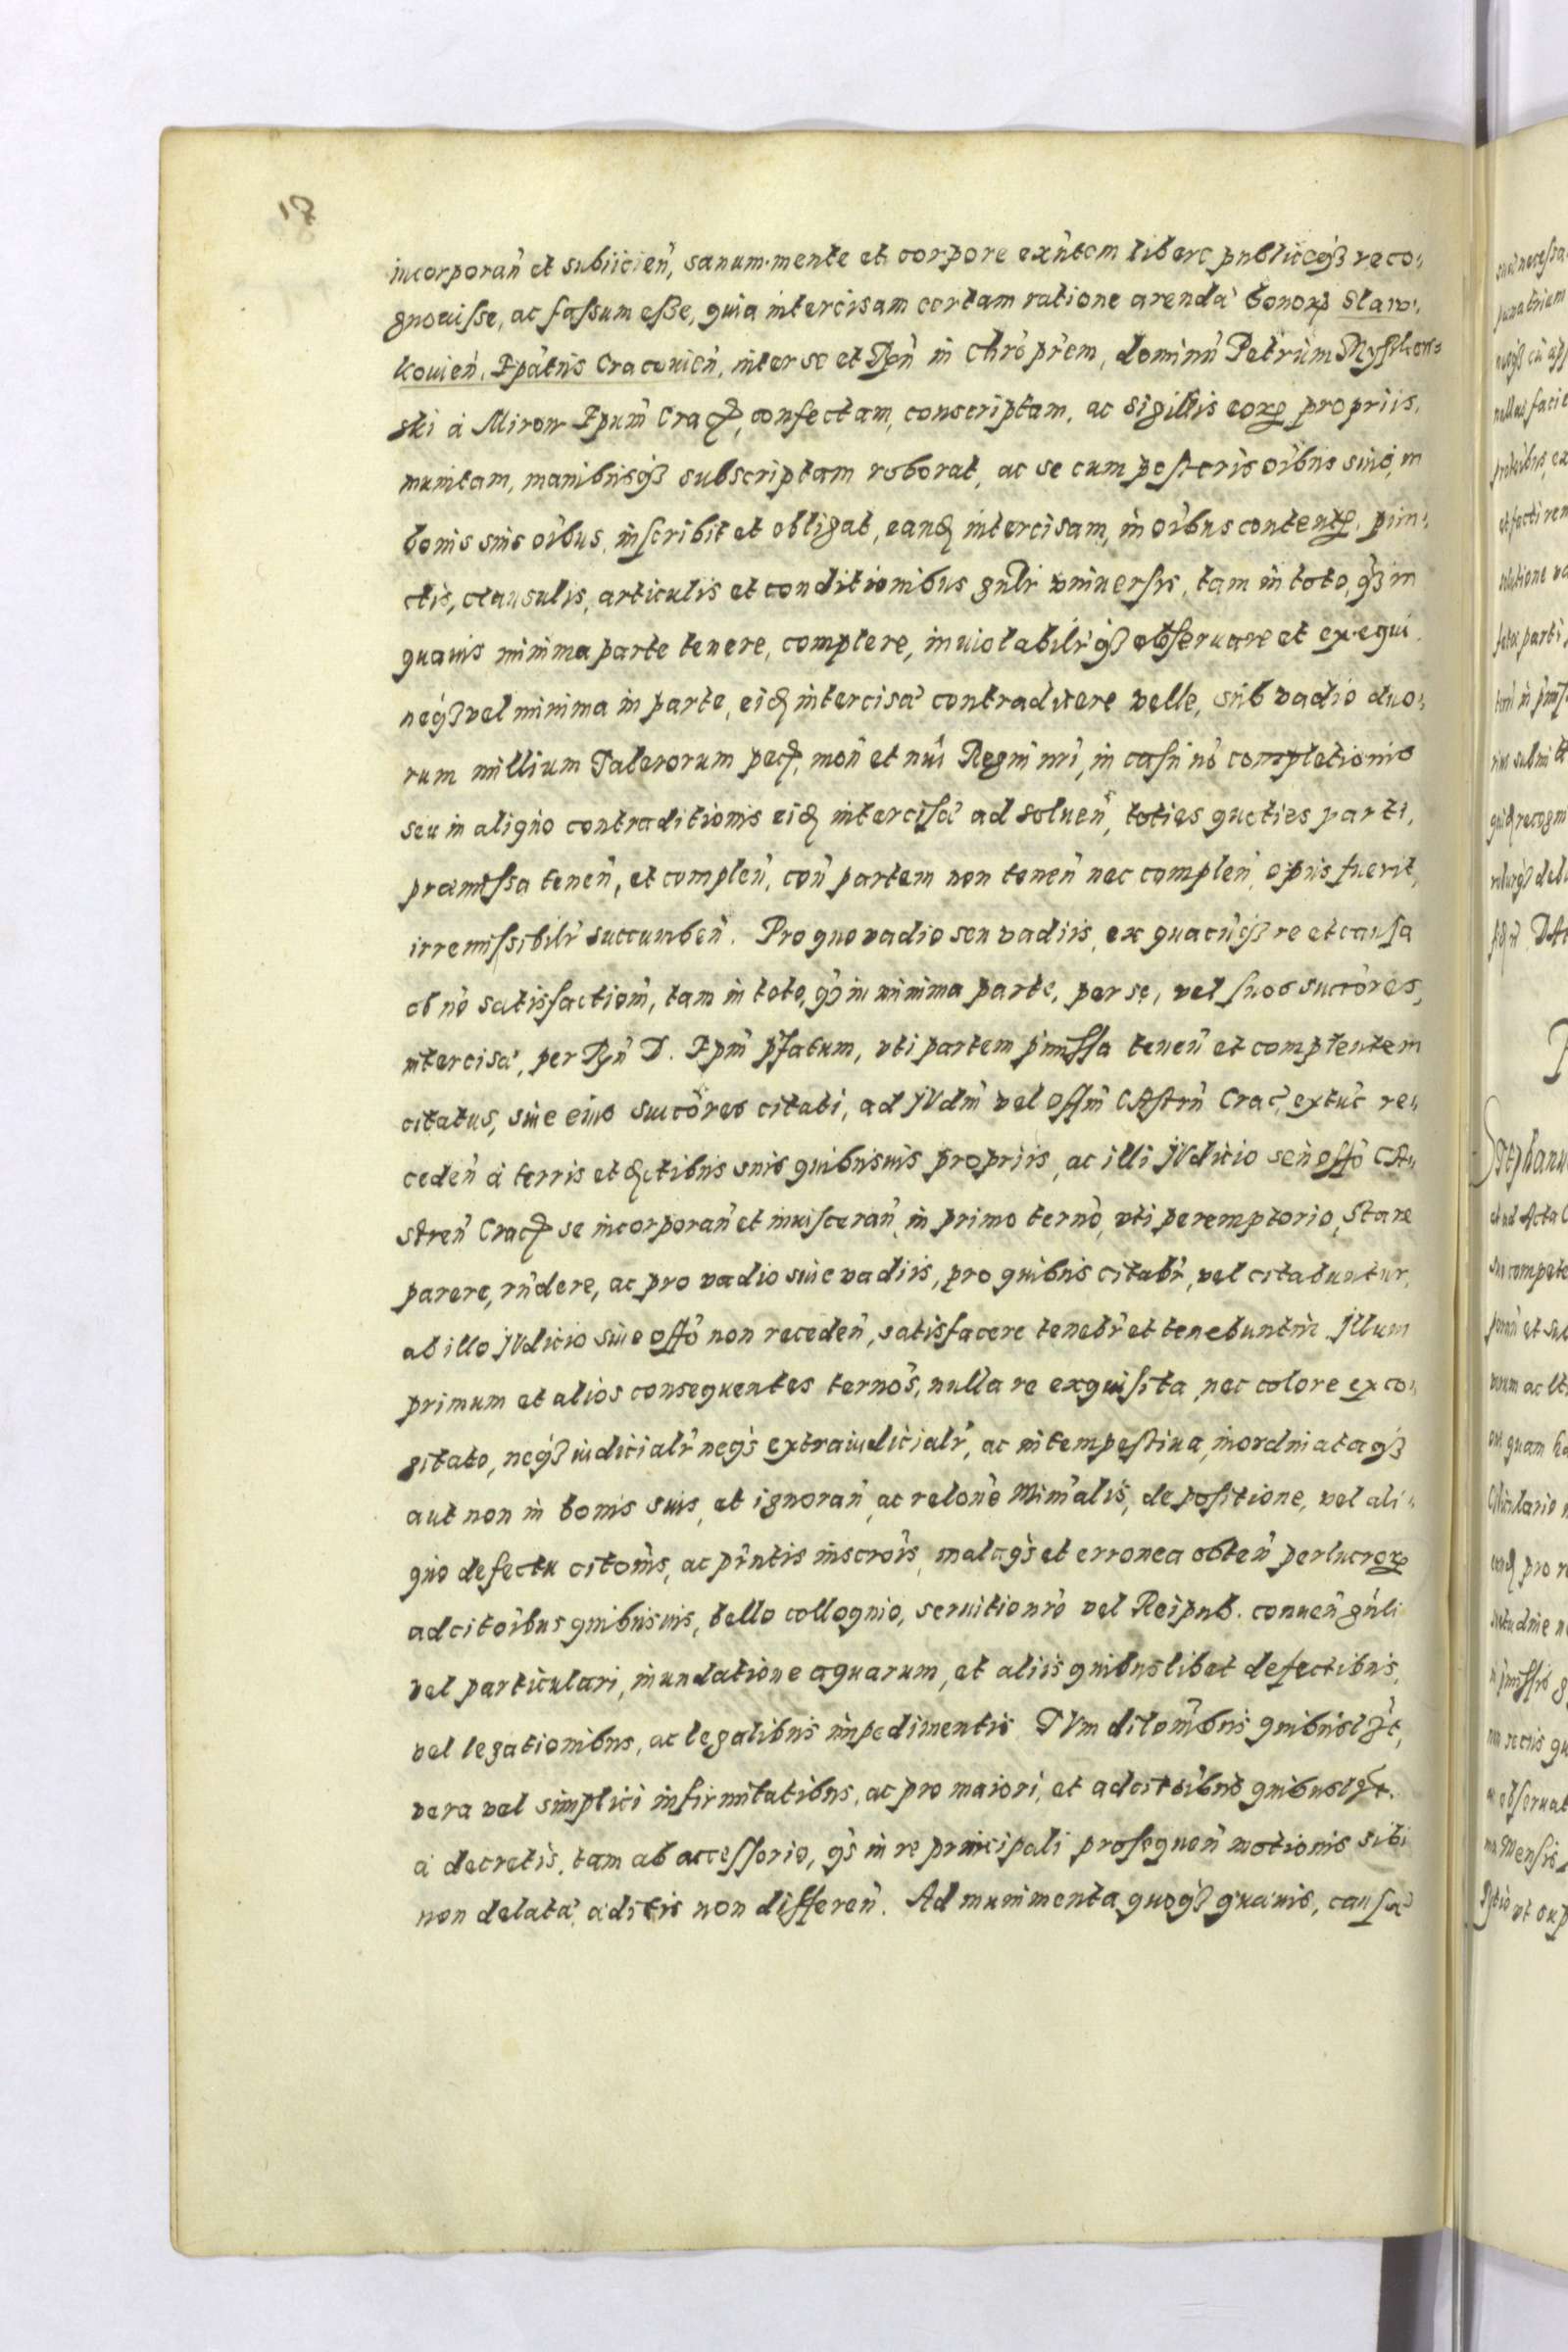 18
incorporan̄ et subiicien̄, sanum mente et corpore exn̄tem libere publiceqʒ reco,,
gnouisse, ac fassum esse, quia intercisam certam ratione arendæ bonorꝝ Slaw,,
kouien̄, Epatus Cracouien̄, inter se et Rn̄ in Chro prem, dominū Petrum Myszkow,,
ski à Mirow Epum Crac̄, confectam, conscriptam, ac sigillis eorꝝ propriis,
munitam, manibusqʒ subscriptam roborat, ac se cum posteris oibus suis, in
bonis suis oibus, inscribit et obligat, eand̄ intercisam, in oibus contentꝭ, pun,,
ctis, clausulis, articulis et conditionibus gn̄lr vniuersis, tam in toto, qʒ in
quauis minima parte tenere, complere, inuiolabilr̄qʒ obseruare et exequi,
neqʒ vel minima in parte, eid̄ intercisæ contradicere velle, sub vadio duo,,
rum millium Talerorum pec̄, mon̄ et nui Regni nri, in casu nō completionis
seu in aliquo contraditionis eid̄ intercisæ ad soluen̄, toties quoties parti,
præmissa tenen̄, et complen̄, con̄ partem non tenen̄ nec complen̄, opus fuerit,
irremissibilr̄ succumben̄. Pro quo vadio seu vadiis, ex quacūqʒ re et causa
ob nō satisfactionē, tam in toto, qʒ in minima parte, per se, vel suos succōres,
intercisæ, per Rn̄ D. Epm̄ pfatum, vti partem pmissa tenen̄ et complentem
citatus, siue eius succōres citati, ad JVdm̄ vel offm̄ CAstrn̄ Crac̄, extūc re,,
ceden̄ à terris et dctibus suis quibusuis propriis, ac illi JVdicio seu offō CA,,
stren̄ Crac̄ se incorporan̄ et inuisceran̄, in primo ternō, vti peremptorio, Stare
parere, rn̄dere, ac pro vadio siue vadiis, pro quibus citabr̄, vel citabuntur,
ab illo JVdicio siue offō non receden̄, satisfacere tenebr̄ et tenebuntur Jllum
primum et alios consequentes ternos, nulla re exquisita, nec colore exco,,
gitato, neqʒ iudicialr̄ neqʒ extraiudicialr̄, ac intempestiua, inordinataqʒ
aut non in bonis suis, et ignoran̄, ac relonē Minralis, depositione, vel ali,,
quo defectu citonis, ac pn̄tis inscrōis, malaqʒ et erronea obten̄ per lucrorꝝ
adcitoibus quibusuis, bello colloquio, seruitio nrō vel Reipub. conuen̄ gn̄li
vel particulari, inundatione aquarum, et aliis quibuslibet defectibus,
vel legationibus, ac legalibus impedimentis DVm ditom̄bus quibuslꝫt,
vera vel simplici infirmitatibus, ac pro maiori, et adcitoibus quibuslꝫt.
a decretis, tam ab accessorio, qʒ in re principali prosequen̄ motionis sibi
non delatæ, aditis non differen̄. Ad munimenta quoqʒ quæuis, causæ